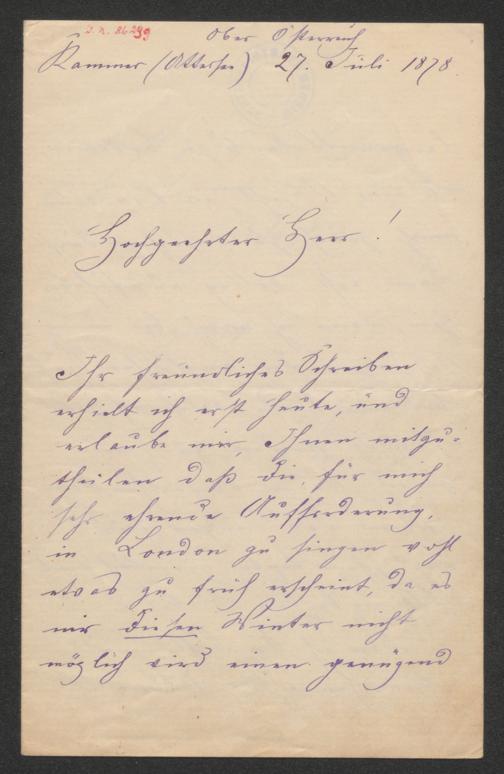 J. N. 86299
Ober Österreich
Kammer (Attersee) 27. Juli 1878.
Hochgeehrter Herr!
Ihr freundliches Schreiben
erhielt ich erst heute, und
erlaube mir, Ihnen mitzu-
theilen daß die, für mich
sehr ehrende Aufforderung,
in London zu singen wohl
etwas zu früh erscheint, da es
mir diesen Winter nicht
möglich wird einen genügend